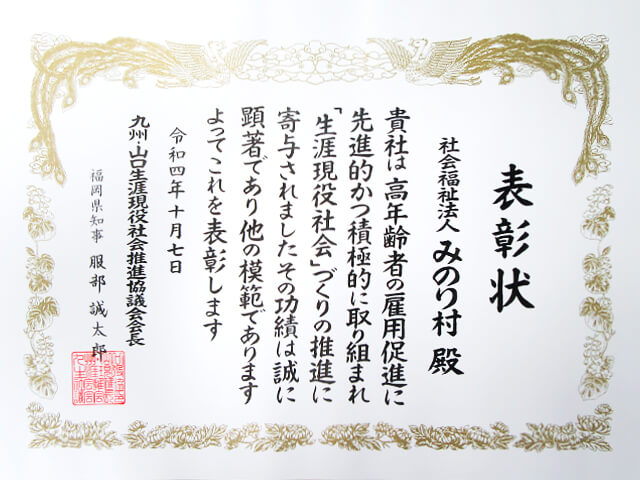 表彰状
社会福祉法人 みのり村 殿
貴社は高年齢者の雇用促進に
先進的かつ積極的に取り組まれ
「生涯現役社会」づくりの推進に
寄与されましたその功績は誠に
顕著であり他の模範であります
よってこれを表彰します
令和四年十月七日
九州・山口生涯現役社会推進協議会会長
福岡県知事 服部誠太郎